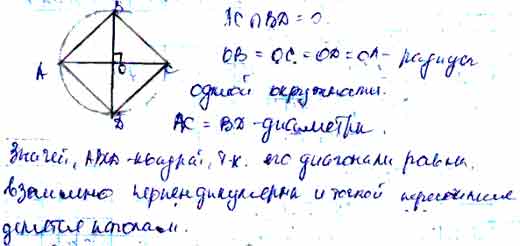 B
AC∩BD=O.
A O C
OB = OC = OD = OA - радиусы
D
одной окружности.
AC = BD - диаметры.
Значит, ABCD - квадрат, т.к. его диагонали равны,
взаимно перпендикулярны и точкой пересечения
делятся пополам.